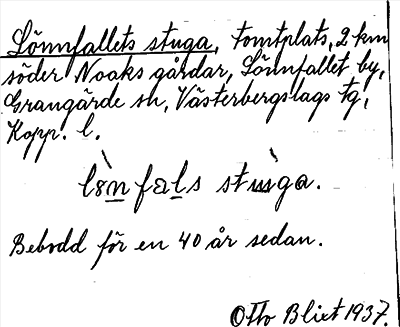 Lönnfallets stuga, tomtplats, 2 km
söder Noaks gårdar, Lönnfallet by,
Grangärde sn, Västerbergslags tg,
Kopp. l.
stùga.
Bebodd för en 40 år sedan.
Otto Blixt 1937.